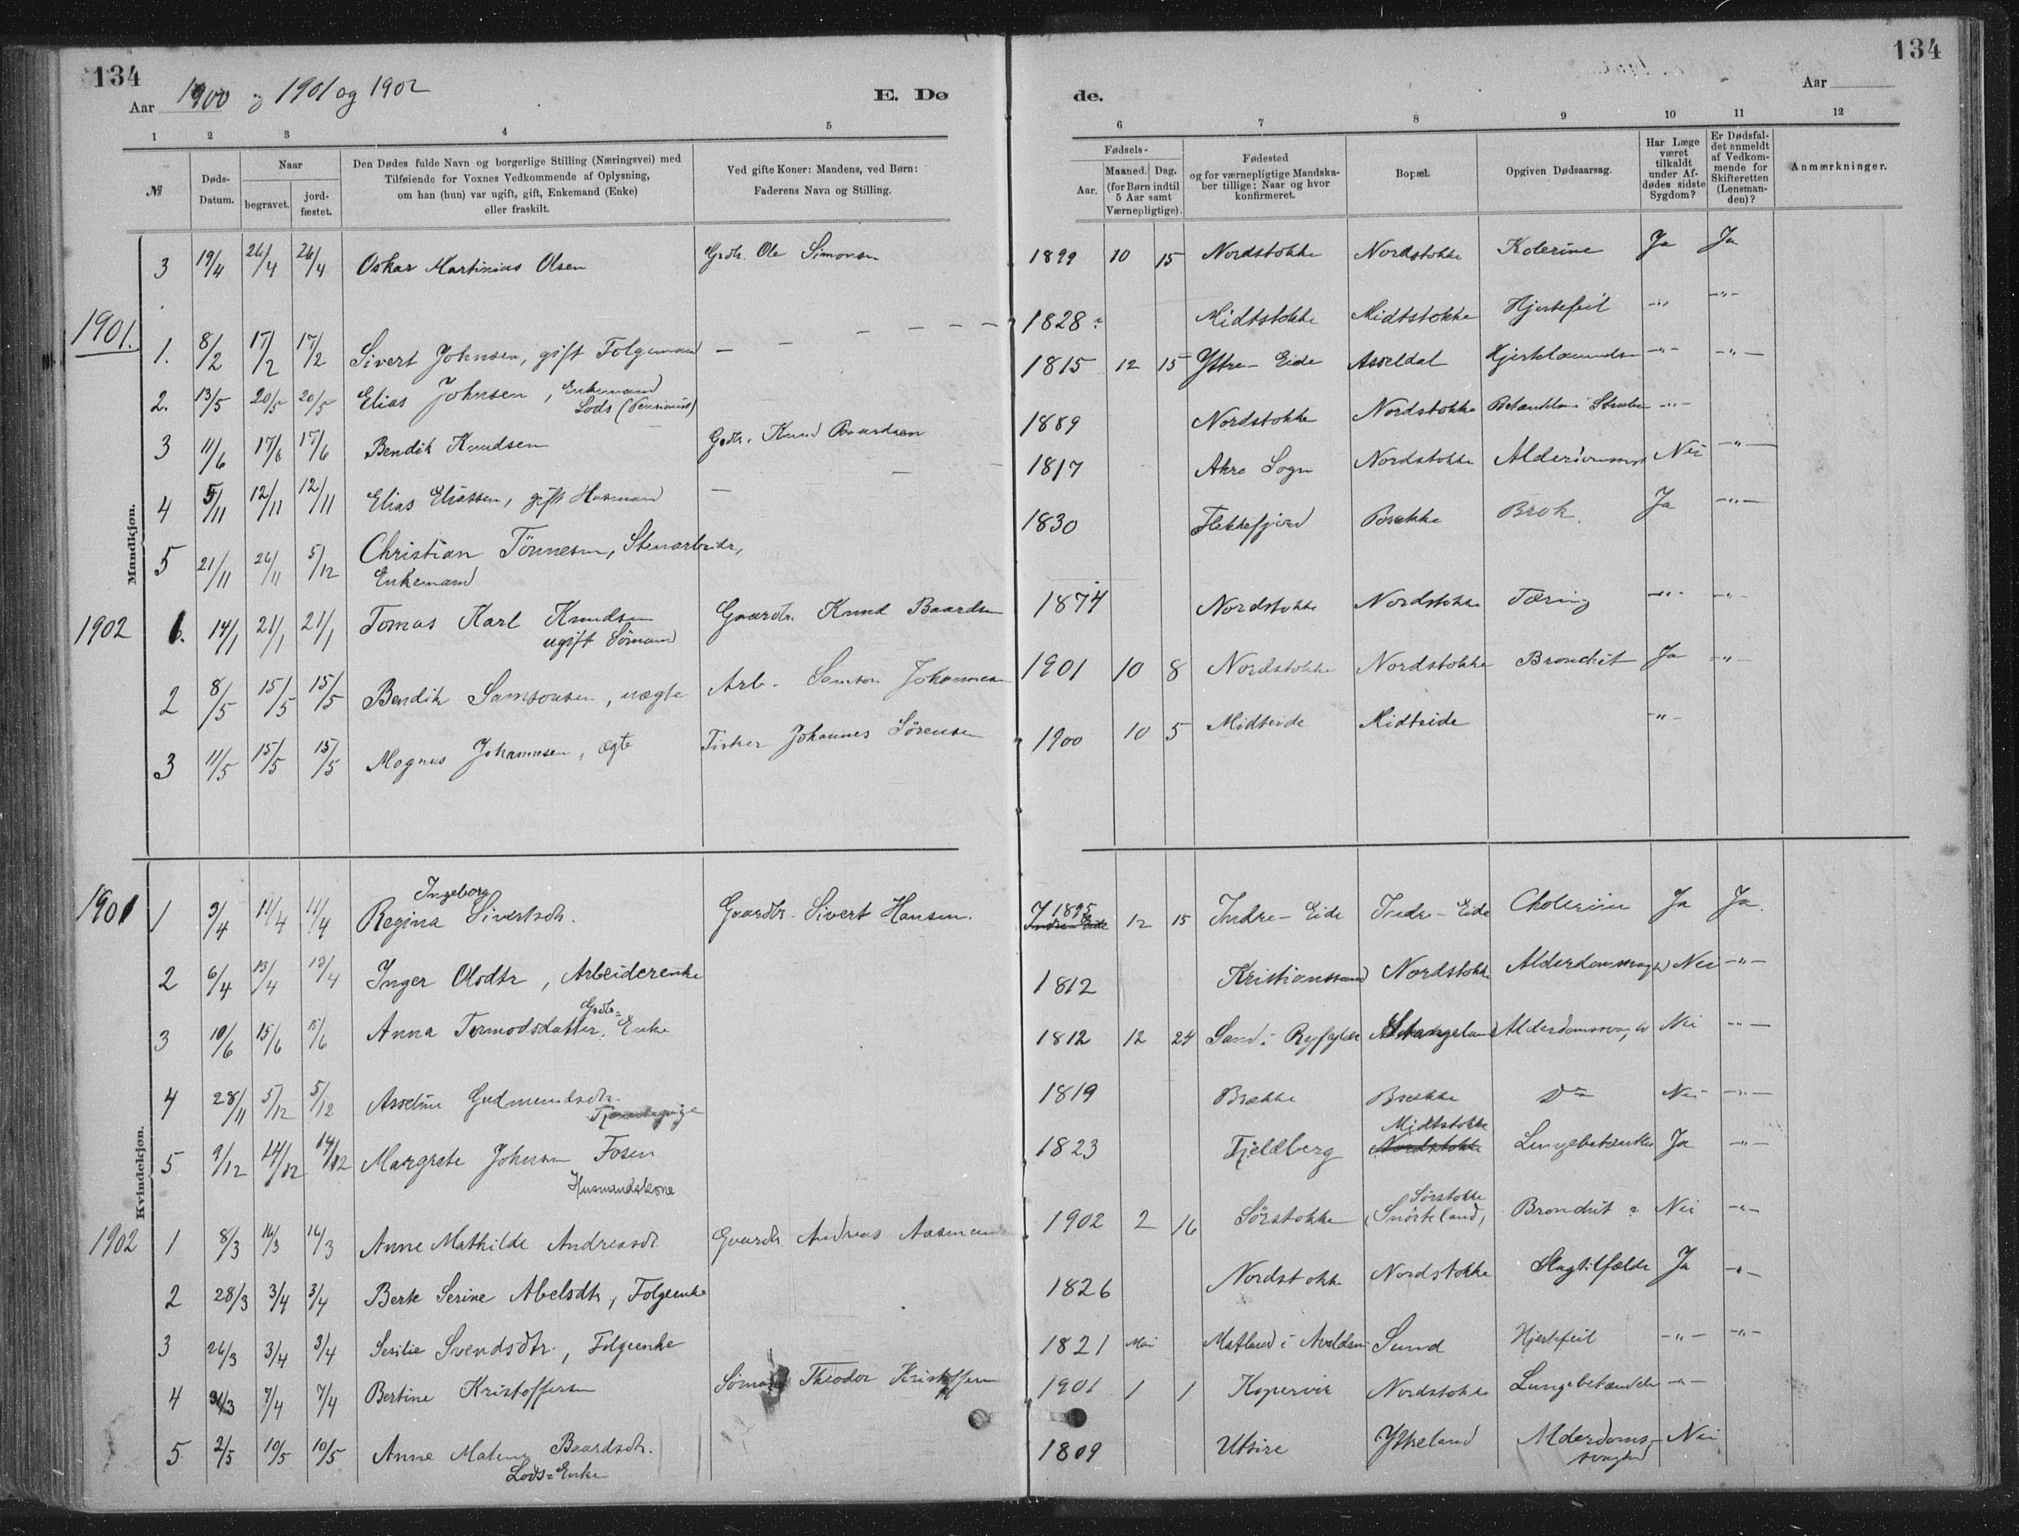 134
Aar 1900 og 1901 og 1902
E. Dø
de.
Aar
134
1 2 3 4 5 6 7 8 9 10 11 12
№
Døds-Datum.
Naar
begravet.
jord-fæstet.
Den Dødes fulde Navn og borgerlige Stilling (Næringsvei) med
Tilføiende for Voxnes Vedkommende af Oplysning,
om han (hun) var ugift, gift, Enkemand (Enke)
eller fraskilt.
Ved gifte Koner: Mandens, ved Børn:
Faderens Navn og Stilling.
Fødsels-
Aar.
Maaned. Dag.
(for Børn indtil
5 Aar samt
Værnepligtige).
Fødested
og for værnepligtige Mandska-
ber tillige: Naar og hvor
konfirmeret.
Bopæl.
Opgiven Dødsaarsag.
Har Læge
været
tilkaldt
under Af-
dødes sidste
Sygdom?
Er Dødsfal-
det anmeldt
af Vedkom-
mende for
Skifteretten
(Lensman-
den)?
Anmærkninger.
Mandkjøn.
3 19/4 26/4 26/4 Oskar Martinius Olsen Grdbr. Ole Simonsen 1899 10 15 Nordstokke Nordstokke Kolerine Ja Ja
1901.
1. 8/2 17/2 17/2 Sivert Johnsen, gift Folgemand — — 1828 Midtstokke Midtstokke Hjertefeil -"- -"-
2. 13/5 20/5 20/5 Elias Johnsen, Enkemand
Lods (Pensionist) 1815 12 15 Ystre-Eide Asseldal -"- -"-
3 11/6 17/6 17/6 Bendik Knudsen Grdbr. Knud Baardsen 1889 Nordstokke Nordstokke Betændelse i Struben -"-
4 5/11 12/11 12/11 Elias Eliassen, gift Husmand — 1817 Akre Sogn Nordstokke Nei -"-
5 21/11 26/11 5/12 Christian Tönnesen, Stenarbeidr,
Enkemand 1830 Flekkefjord Brekke Brok. Ja -"-
1902 1. 14/1 21/1 21/1 Tomas Karl Knudsen
ugift Sömand Gaardbr. Knud Baardsen 1874 Nordstokke Nordstokke Tæring -"- -"-
2 8/5 15/5 15/5 Bendik Samsonsen, uægte Arb. Samson Johannesen 1901 10 8 Nordstokke Nordstokke Bronchit Ja -"-
3 11/5 15/5 15/5 Magnus Johannesen, ægte Fisker Johannes Sörensen 1900 10 5 Midteide Midteide -"-
Kvindekjøn.
1901 1 3/4 11/4 11/4 Ingeborg
Regina Sivertsdtr. Gaardbr. Sivert Hansen. 1895 12 15 Indre-Eide Indre-Eide Cholerine Ja Ja.
2 6/4 13/4 13/4 Inger Olsdtr, Arbeiderenke 1812 Kristianssand Nordstokke Alderdomssvaghed Nei -"-
3 10/6 15/6 15/6 Anna Tormodsdatter, Grdbr=Enke 1812 12 24 Sand i Ryfylke Stangeland Alderdomssvaghed Nei -"-
4 28/11 5/12 5/12 Asseline Gudmundsdtr. Tjenestepige 1819 Brække Brække Do Nei -"-
5 9/12 14/12 14/12 Margrete Johnsen Fosen
Husmandskone 1823 Fjeldberg Midtstokke
Nordstokke Lungebetændelse Ja -"-
1902 1 8/3 16/3 16/3 Anne Mathilde Andreasdtr Gaardbr Andreas Aasmunds 1902 2 16 Sörstokke Sörstokke
(Snörteland) Bronchit ? Nei -"-
2 28/3 3/4 3/4 Berte Serine Abelsdtr, Folgeenke 1826 Nordstokke Nordstokke Slagtilfælde Ja -"-
3 26/3 3/4 3/4 Serilie Svendsdtr., Folgeenke 1821 Mai Matland i Avaldsnes Sund Hjertefeil -"- -"-
4 31/3 7/4 7/4 Bertine Kristoffersen Sömand Theodor Kristoffersen 1901 1 1 Kopervik Nordstokke Lungebetændelse -"-
5 2/5 10/5 10/5 Anne Malene Baardsdtr.
Lods=Enke 1809 Utsire Ytreland Alderdoms-
svaghed Nei